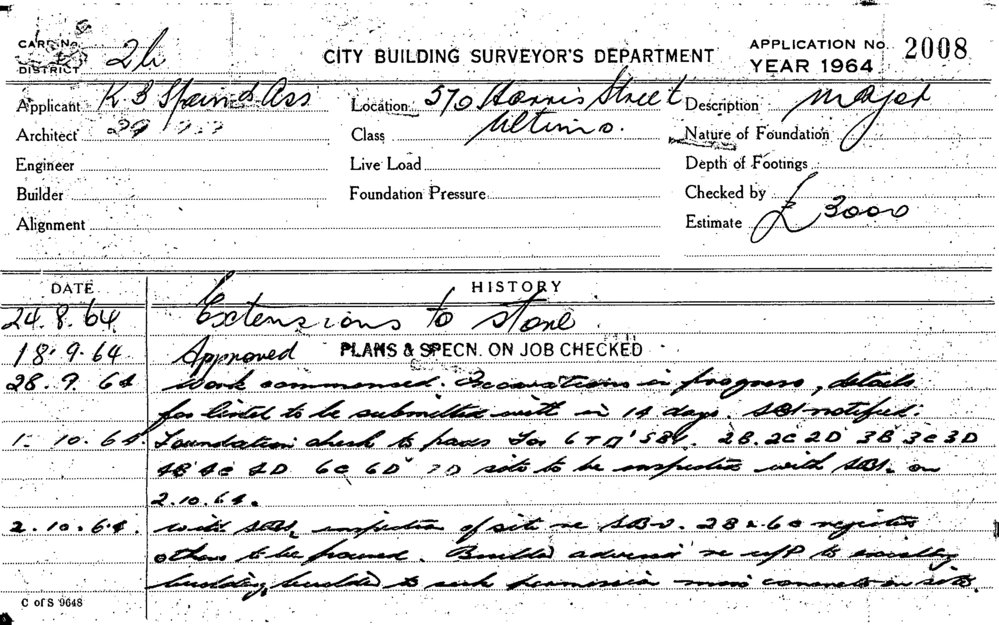 CARD No.
DISTRICT 2h
CITY BUILDING SURVEYOR'S DEPARTMENT
APPLICATION No. 2008
YEAR 1964
Applicant K B Spain & Ass
Location 570 Harris Street
Description major
Architect
Class Ultimo.
Nature of Foundation
Engineer
Live Load
Depth of Footings
Builder
Foundation Pressure
Checked by
Alignment
Estimate £3000
DATE
HISTORY
24.8.64 Extensions to store
18.9.64 Approved PLANS & SPECN. ON JOB CHECKED
28.9.64 work commenced. Excavations in progress, details
for lintel to be submitted with in 14 days. SBI notified.
1.10.64. Foundation check to piers for 2B. 2C 2D 3B 3C 3D
4B 4C 4D 6C 6D site to be inspected with SBI. on
2.10.64.
2.10.64. with SBI, inspection of site re
others to be poured. Builder advised re to existing
building, builder to seek permission concrete on site.
C of S 9648